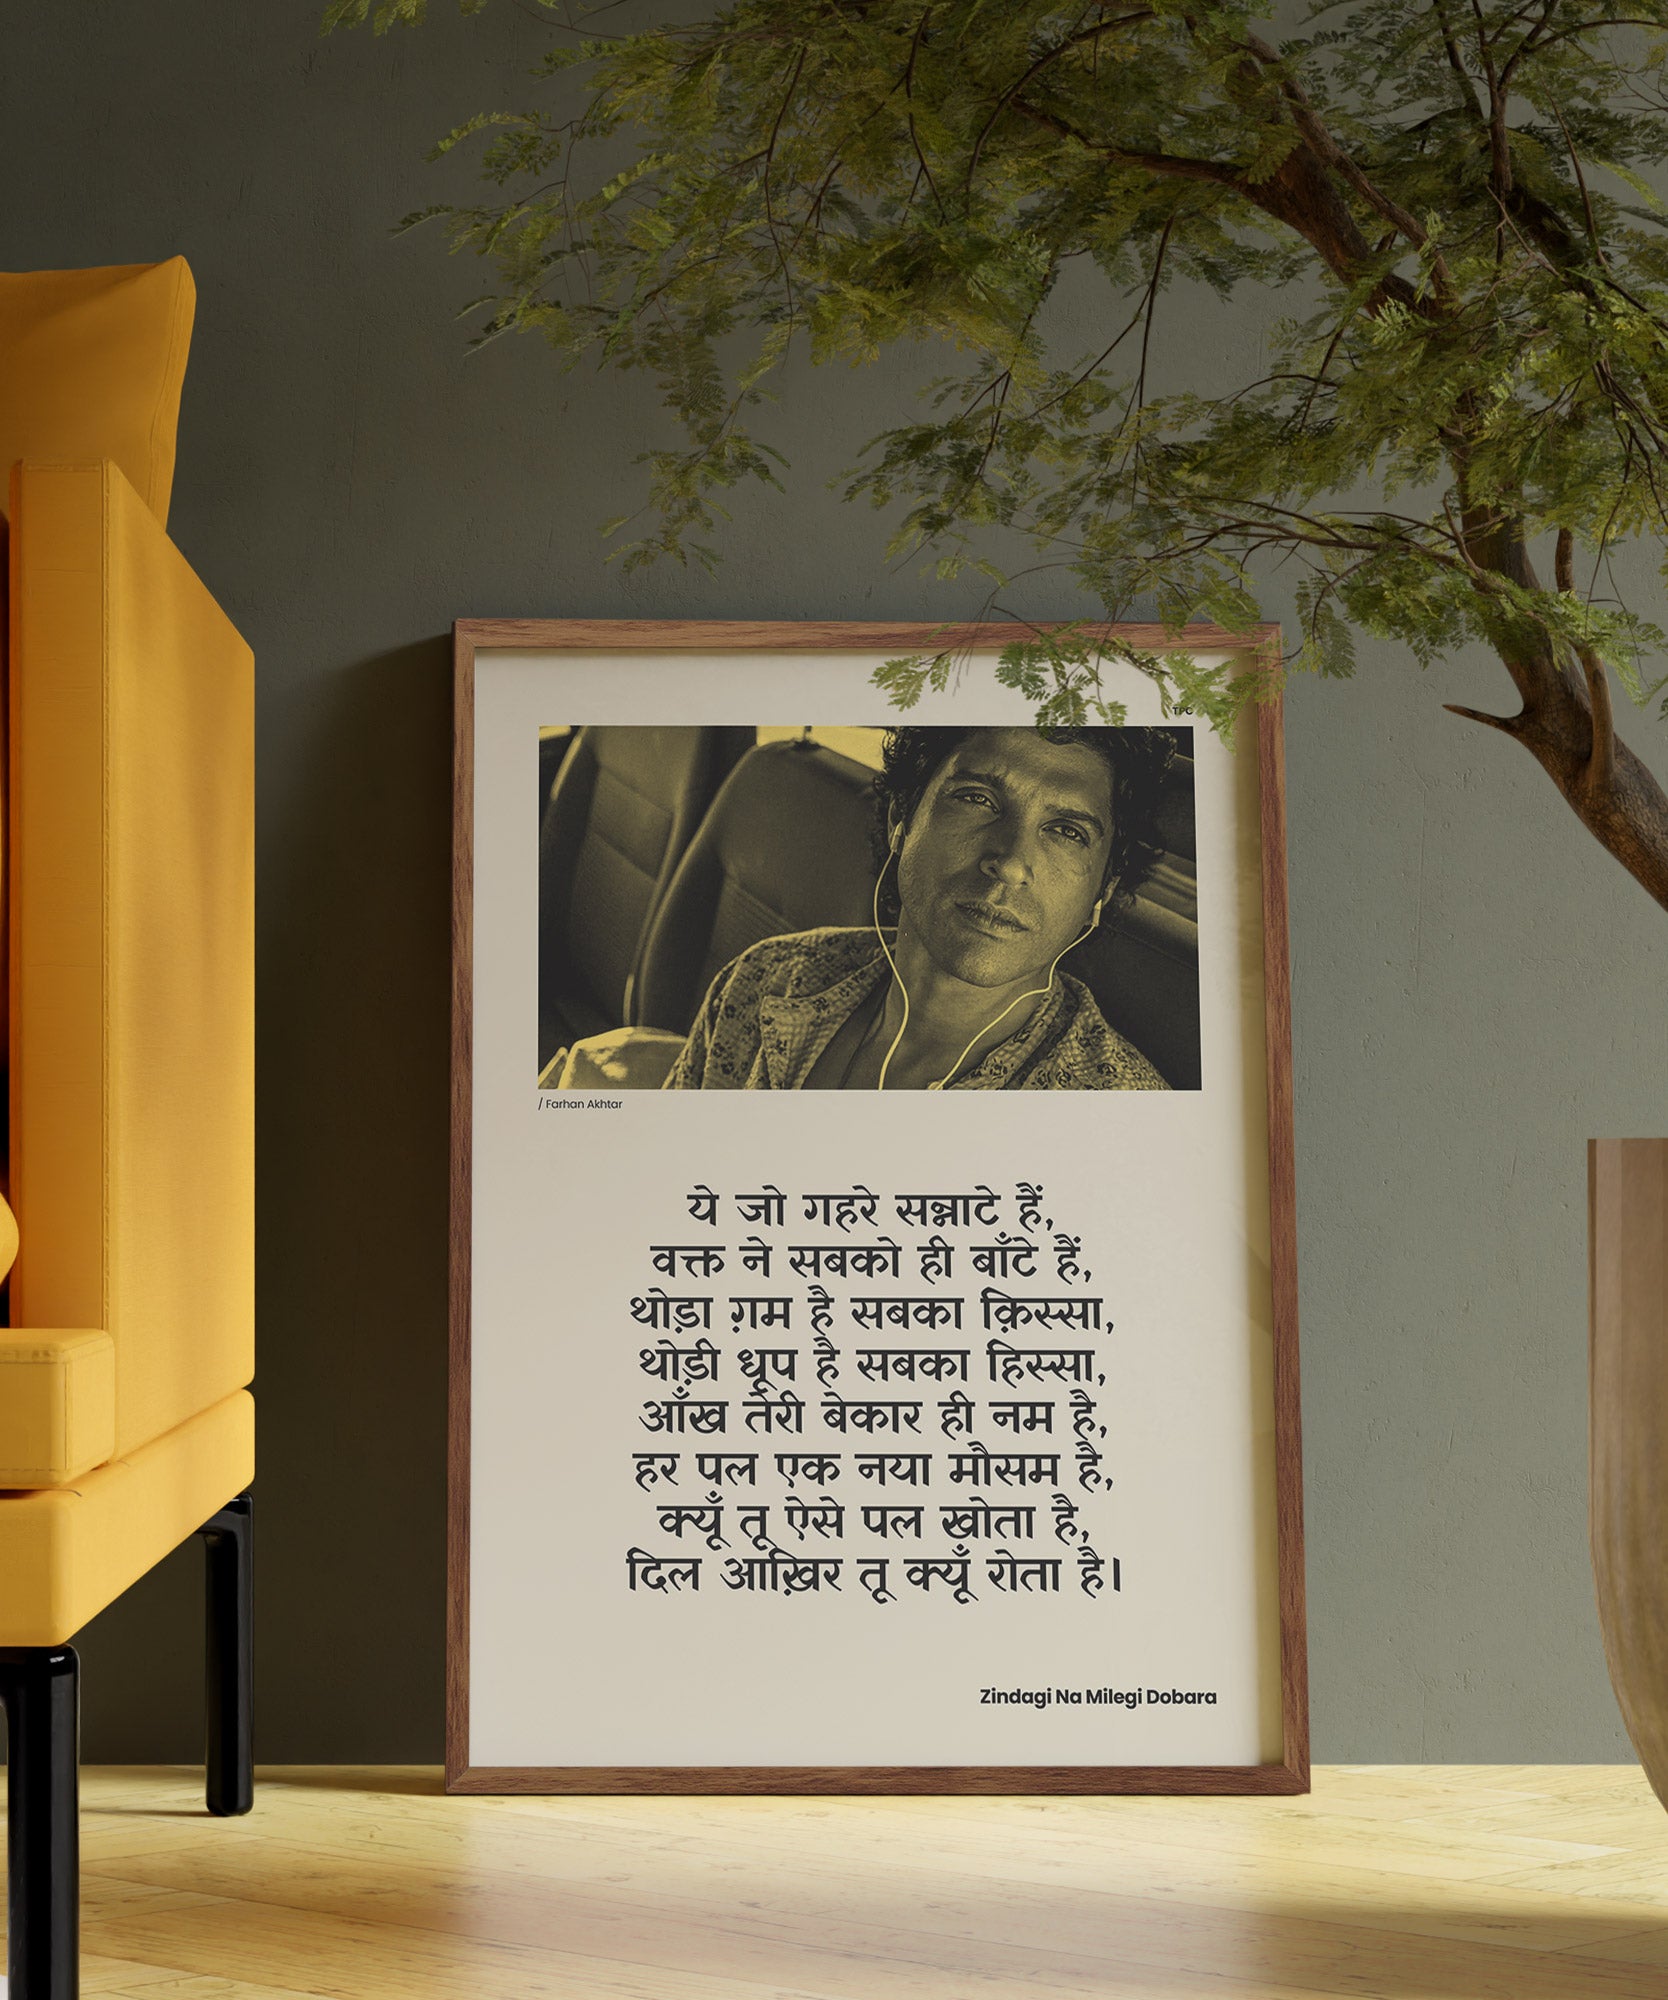 TPC
/ Farhan Akhtar
ये जो गहरे सन्नाटे हैं,
वक्त ने सबको ही बाँटे हैं,
थोड़ा ग़म है सबका क़िस्सा,
थोड़ी धूप है सबका हिस्सा,
आँख तेरी बेकार ही नम है,
हर पल एक नया मौसम है,
क्यूँ तू ऐसे पल खोता है,
दिल आख़िर तू क्यूँ रोता है।
Zindagi Na Milegi Dobara